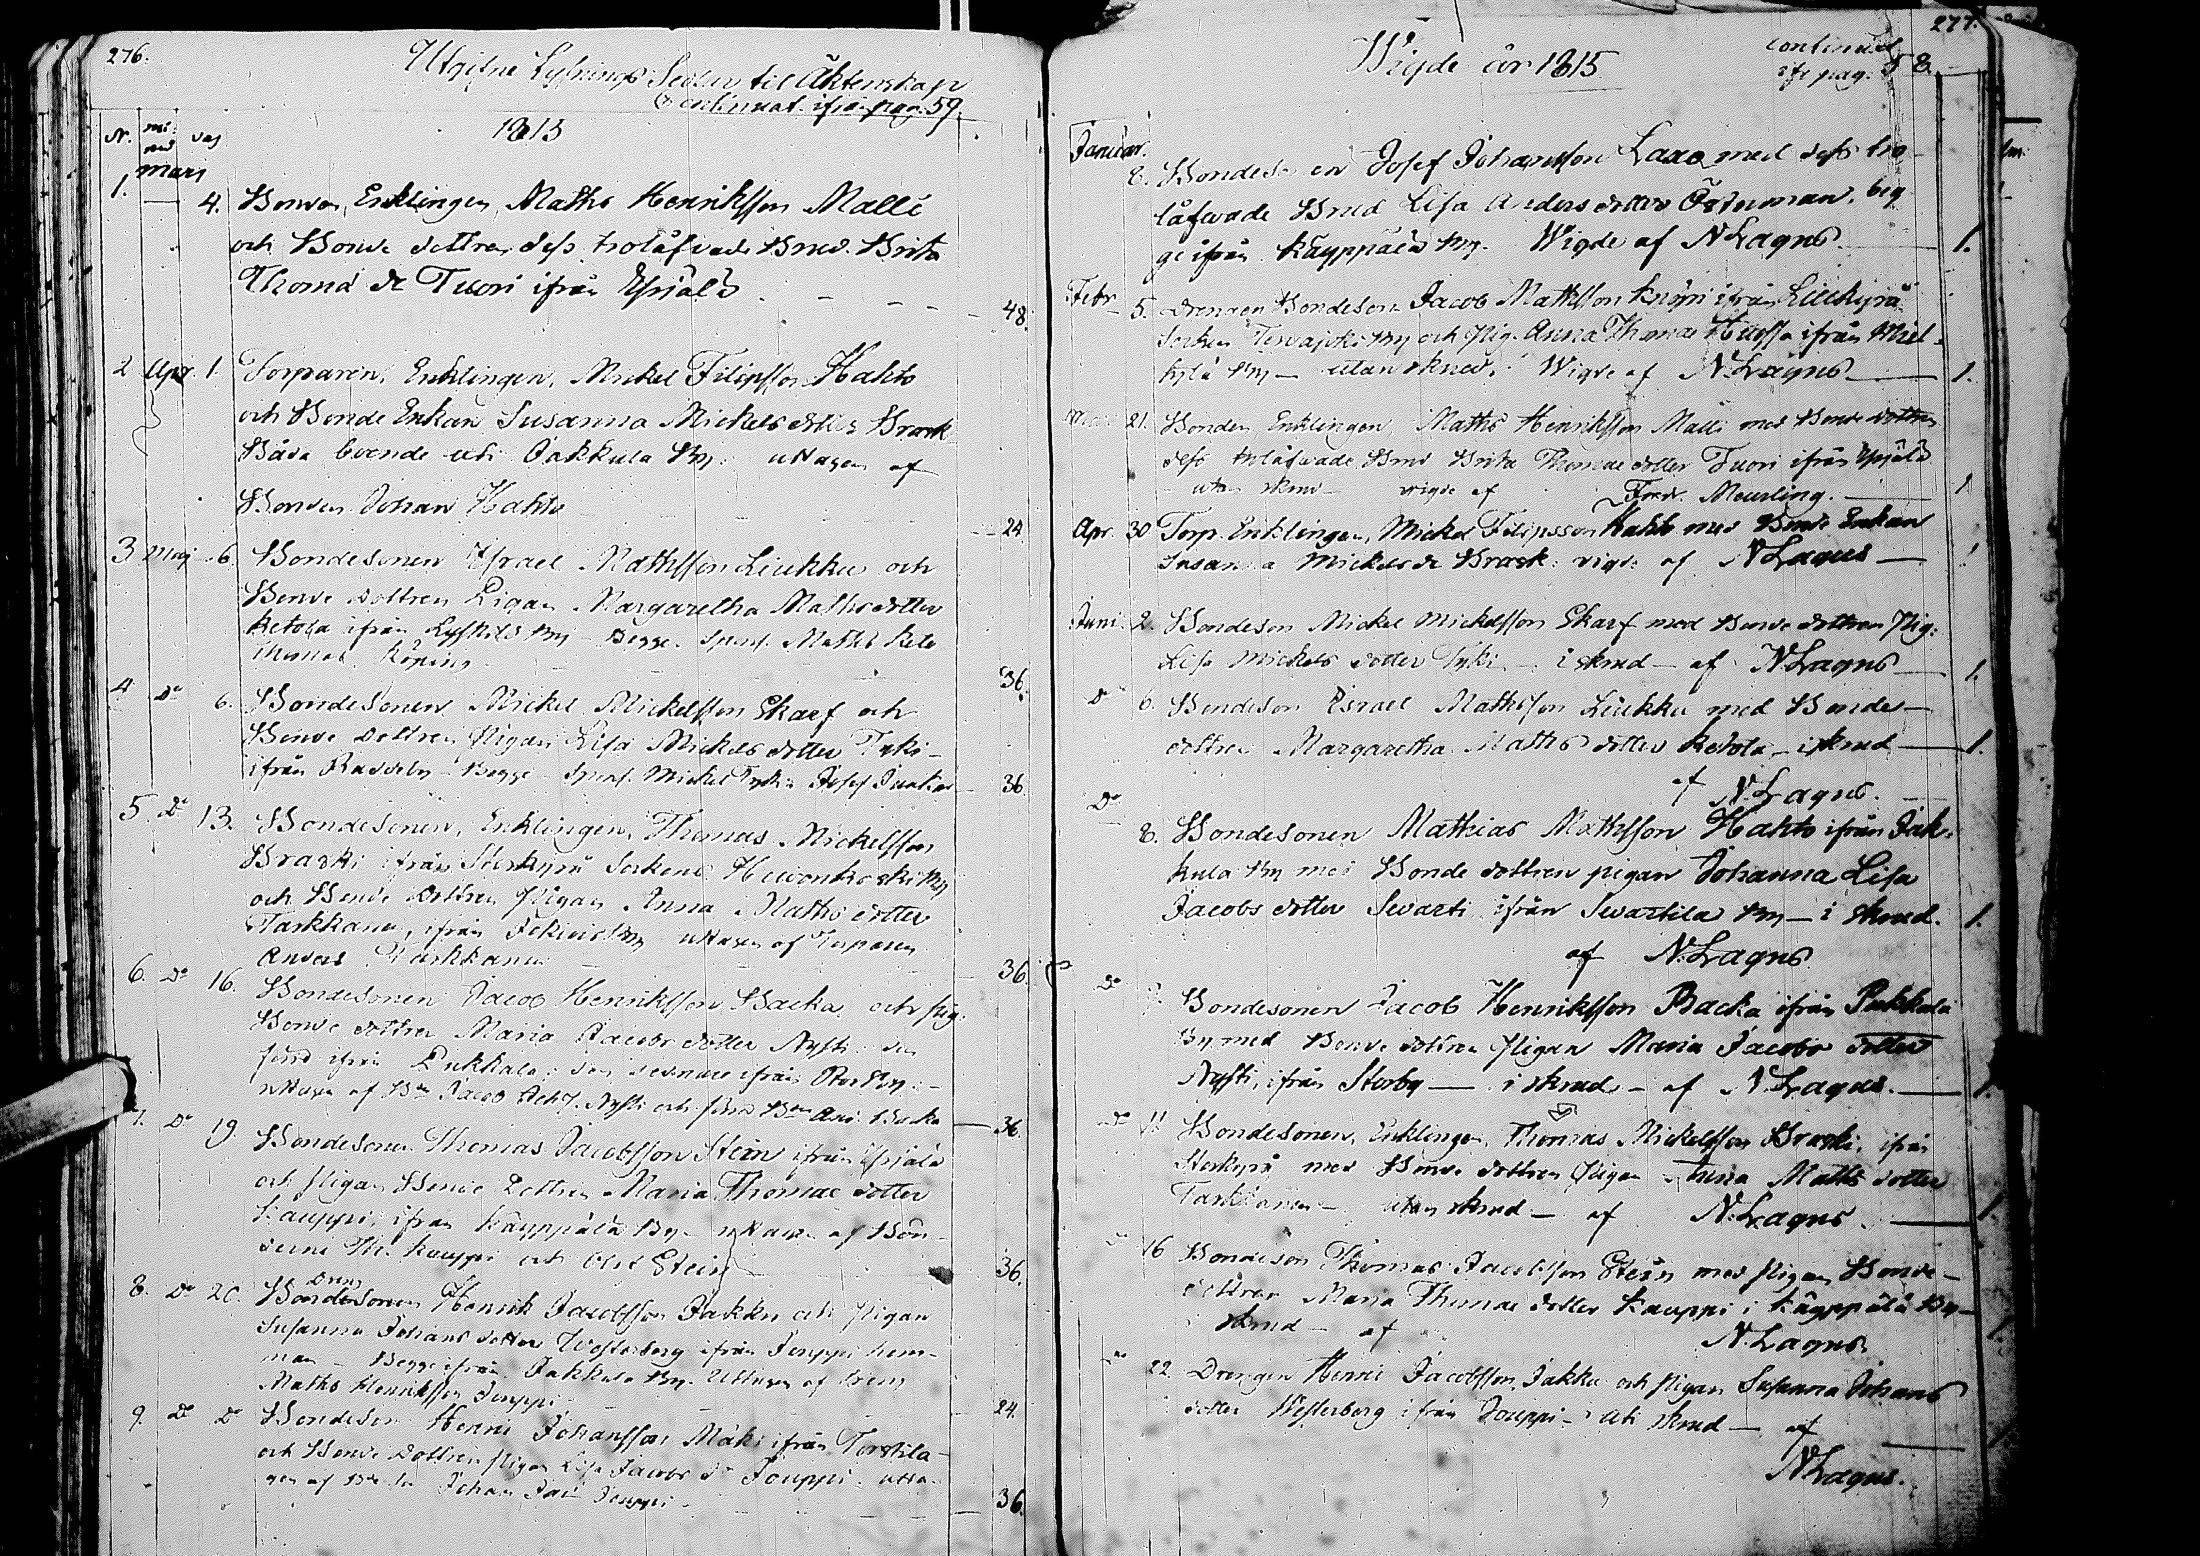 276.
Utgifne Lysnings Sedlar til Äktenskap
Continuat. ifrån pag. 59.
1815
N. må: nad dag
Mars
1. 4. Bonden, Enklingen, Maths Henriksson Malli
och Bonde dottren dess trolåfvade Brud. Brita
Thomæ dr Tuori ifrån
48.
2 Apr. 1. Torparen, Enklingen, Mickel Filipsson Hahto
och Bonde Enkan Susanna Mickels dotter Brask
Båda boende uti Jakkula By. uttagen af
Bonden Johan Hahto
24
3 Maj 6. Bondesonen Israel Mathsson Liukku och
Bonde dottren Pigan Margaretha Maths dotter
Ketola ifrån By - Begge. Maths
36.
4 Do 6. Bondesonen Mickel Mickelsson Skarf och
Bonde dottren Pigan Lisa Mickels dotter Tyki -
ifrån - Begge - Mickel Tyki Josef
36
5. Do 13. Bondesonen, Enklingen, Thomas Mickelsson
Braski ifrån Storkyrå Sockens By
och Bonde dottren Pigan Anna Maths dotter
Tarkkanen, ifrån By uttagen af Torparen
Anders Tarkkanen
36.
6. Do 16. Bondesonen Jacob Henriksson Backa och pig.
Bonde dottren Maria Jacobs dotter Nysti den
förra ifrån den sednare ifrån Storby. -
uttagen af Bn Jacob Nysti och förra Bon And. Backa
36.
7. Do 19. Bondesonen Thomas Jacobsson Stein ifrån
och pigan Bonde Dottren Maria Thomae dotter
Kauppi, ifrån Käyppälä By - uttagen af Bön-
derne Th. Kauppi och Stein
36.
Dreng
8. Do 20. Bondesonen Henrik Jacobsson Jakku och pigan
Susanna Johans dotter Westerberg ifrån Jouppi hem-
man - Begge ifrån Jakkula By. Uttagen af
Maths Henriksson Jouppi
24.
9. Do Do Bondeson Henric Johansson Mäki ifrån Torstila
och Bonde dottren pigan Lisa Jacobs dr Jouppi. utta-
gen af Johan Jouppi
36.
277.
Wigde år 1815
continuat
ifr pag. 58.
Januar.
8. Bondeson en Josef Johansson Laxo med dess tro
låfwade Brud Lisa Anders dotter Österman, beg
ge ifrån Käyppälä By. Wigde af N Lagus. 1.
Febr 5. Drengen Bondeson Jacob Mathsson Knopi ifrån Lillkyrå
Socken By och Pig. Anna Thomæ Hussa ifrån Miel-
kylä By - utan skrud. Wigde af N. Lagus 1.
21. Bonden Enklingen Maths Henriksson Malli med Bonde dottren
dess trolåfwade Brud Brita Thomæ dotter Tuori ifrån
utan skrud - vigde af Fredr. Meurling. 1
Apr. 30 Torp. Enklingen, Mickel Filipsson Hahto med Bonde Enkan
Susanna Mickels dr Brask. vigde af N Lagus - 1
Juni 2. Bondeson Mickel Mickelsson Skarf med Bonde dottren Pig:
Lisa Mickels dotter Tyki - i skrud - af N Lagus 1.
Do 6. Bondeson Israel Mathsson Liukku med Bonde -
dottren Margaretha Maths dotter Ketola - i skrud 1.
af N. Lagus.
Do 8. Bondesonen Mathias Mathsson Hahto ifrån Jak-
kula By med Bonde dottren pigan Johanna Lisa
Jacobs dotter Swarti ifrån Swartila By - i skrud. 1.
af N. Lagus
Do Bondesonen Jacob Henriksson Backa ifrån Pukkala
By med Bonde dottren Pigan Maria Jacobs dotter
Nysti, ifrån Storby - i skrud - af N. Lagus. 1.
Do 11 Bondesonen, Enklingen, Thomas Mickelsson Braski, ifrån
Storkyrå med Bonde dottren Pigan Anna Maths dotter
Tarkkanen - utan skrud - af N. Lagus. 1.
16 Bondeson Thomas Jacobsson Stein med Pigan Bonde -
dottren Maria Thomæ dotter Kauppi i Käyppälä By -
skrud - af N. Lagus. 1.
22 Drengen Henric Jacobsson Jakku och pigan Susanna Johans
dotter Westerberg ifrån Jouppi - uti skrud - af
N Lagus.